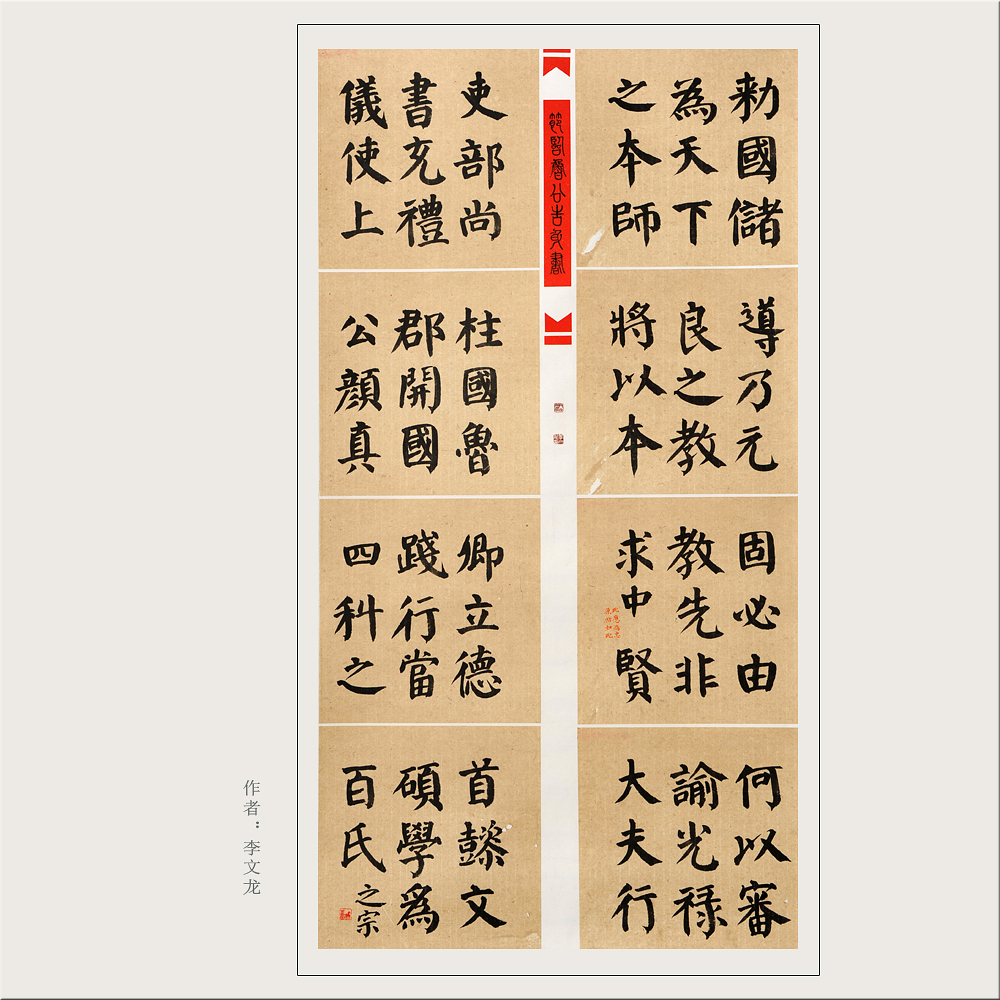 勅國儲
為天下
之本師
導乃元
良之教
將以本
固必由
教先非
求中賢
此應為忠
原帖如此
何以審
諭光禄
大夫行
節臨魯公告身書
吏部尚
書充禮
儀使上
柱國魯
郡開國
公顔真
卿立德
踐行當
四科之
首懿文
碩學爲
百氏之宗
作者：李文龙